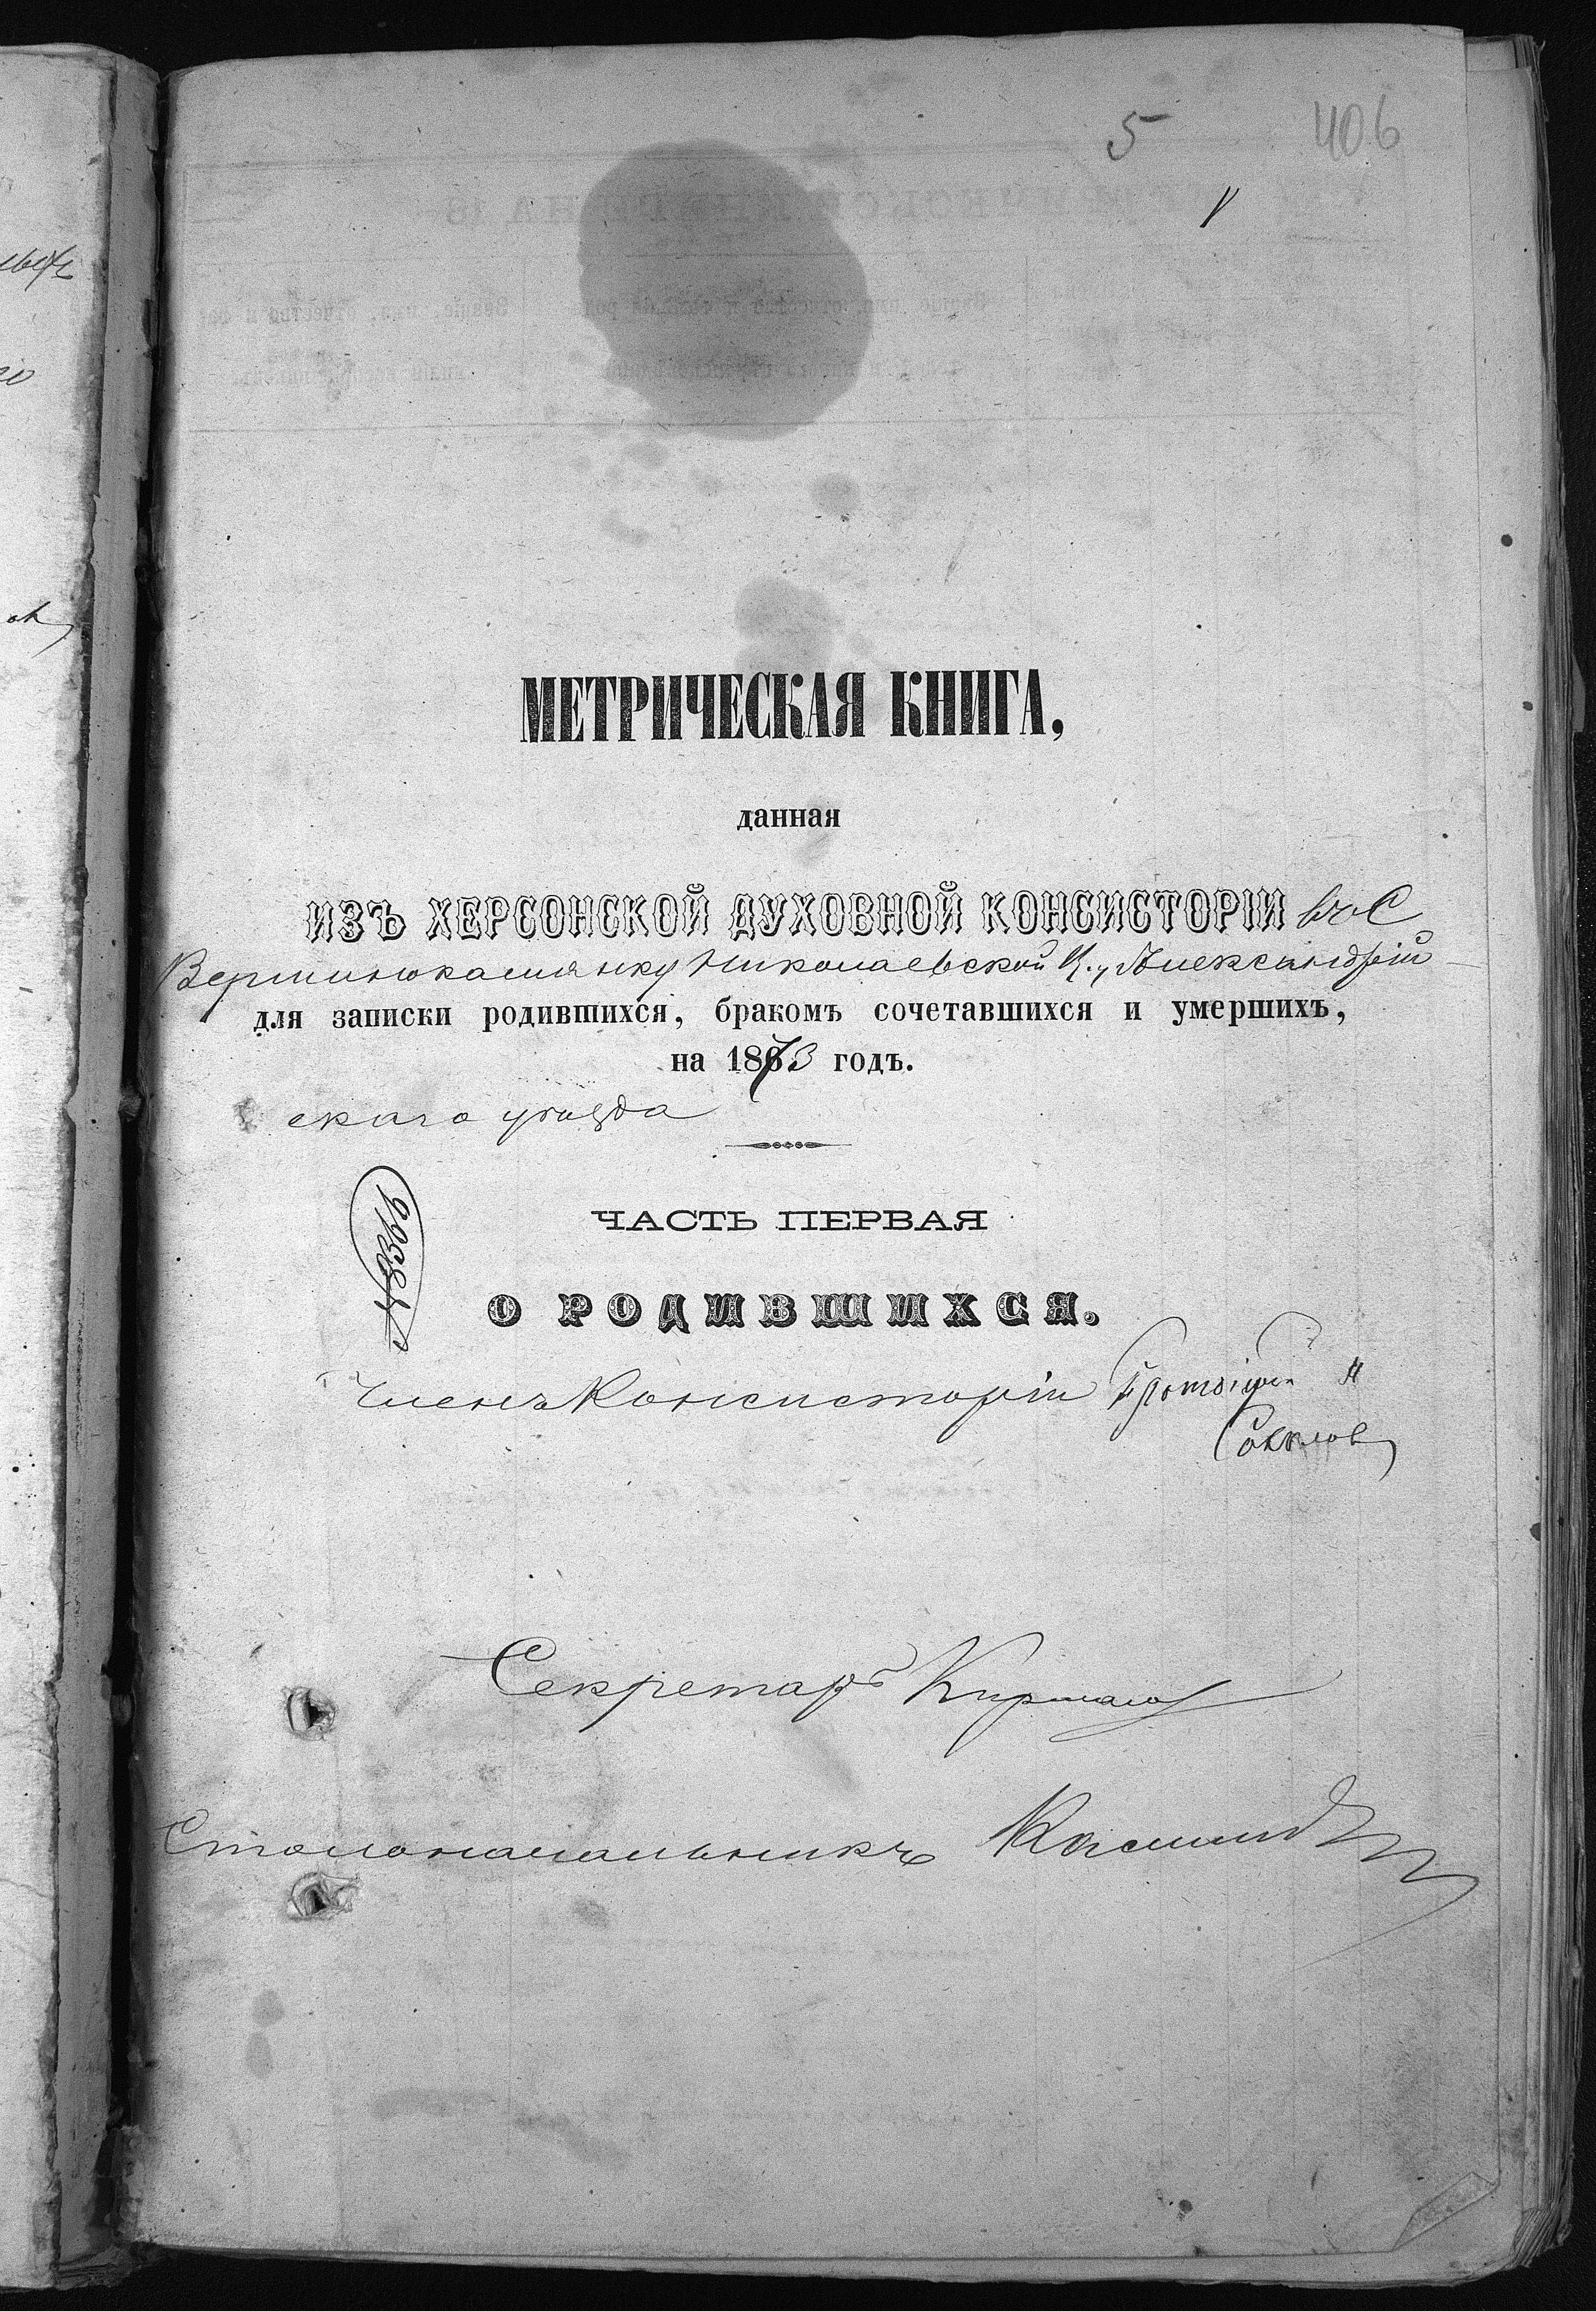 5 406
V
МЕТРИЧЕСКАЯ КНИГА,
данная
ИЗЪ ХЕРСОНСКОЙ ДУХОВНОЙ КОНСИСТОРІИ во С
Вершинокамянку Николаевской Ц., Александрій
для записки родившихся, бракомъ сочетавшихся и умершихъ,
на 1873 годъ.
скаго уѣзда
ЧАСТЬ ПЕРВАЯ
О РОДИВШИХСЯ.
Членъ Консисторіи Протоіерей
Соколов
Секретарь
Столоначальникъ